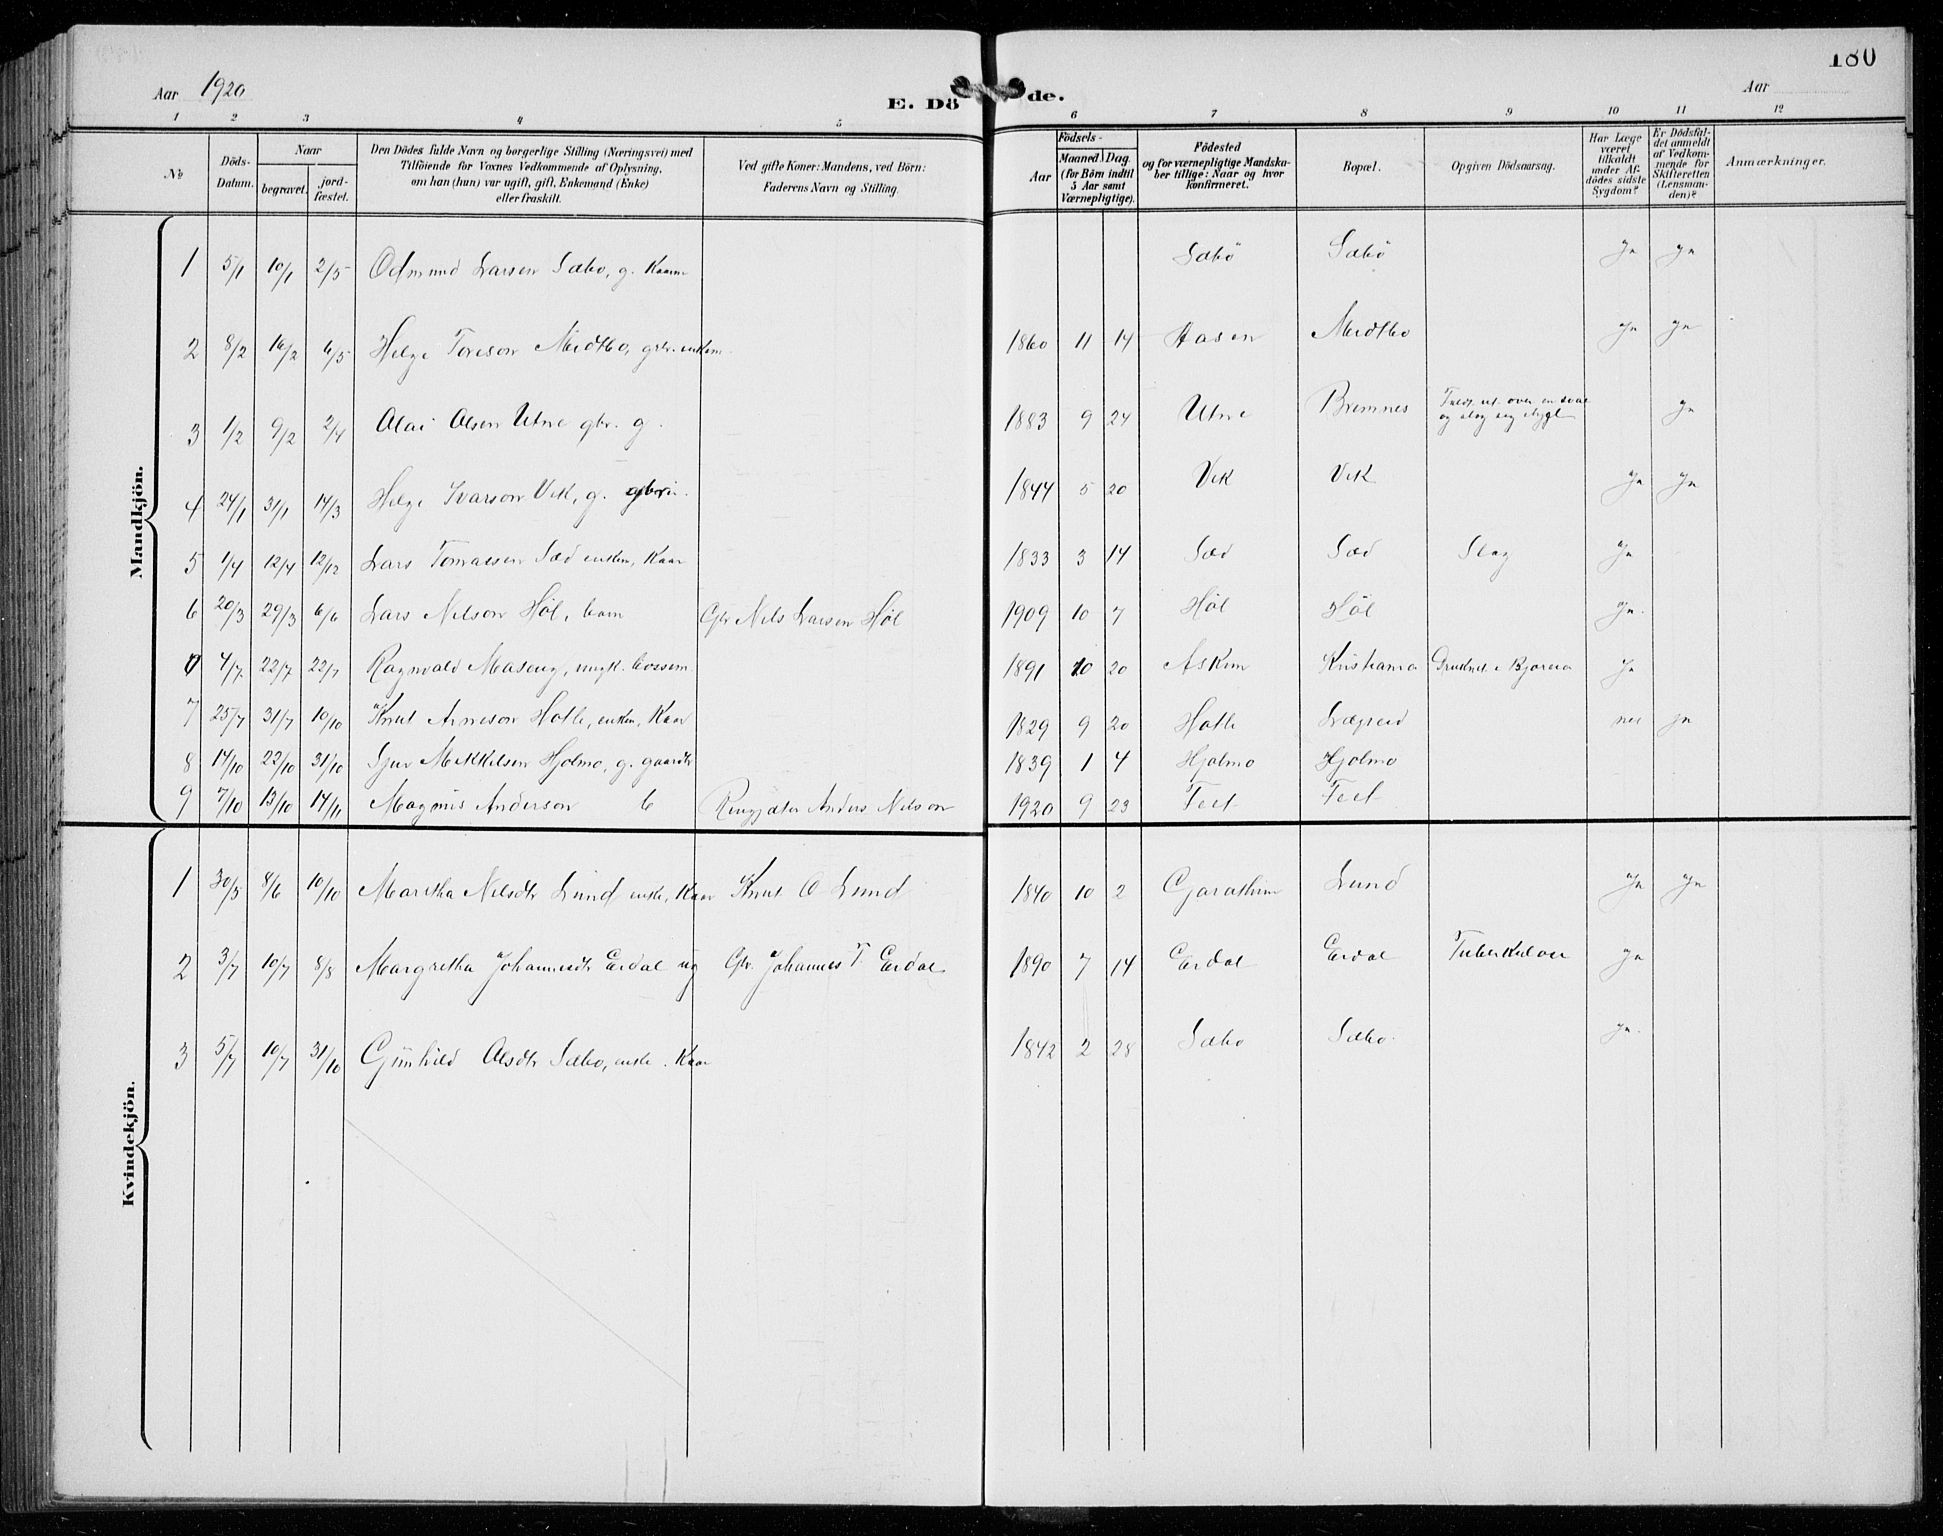 180
Aar 1920
E. Döde.
Aar
1 2 3 4 5 6 7 8 9 10 11 12
No
Döds-Datum.
Naar
begravet.
jord-fæstet.
Den Dödes fulde Navn og borgerlige Stilling (Næringsvei) med
Tilföiende for Voxnes Vedkommende af Oplysning,
om han (hun) var ugift, gift, Enkemand (Enke)
eller fraskilt.
Ved gifte Koner: Mandens, ved Börn:
Faderens Navn og Stilling.
Födsels-
Aar
Maaned. Dag.
(for Börn indtil
5 Aar samt
Værnepligtige).
Födested
og for værnepligtige Mandska-
ber tillige: Naar og hvor
konfirmeret.
Bopæl.
Opgiven Dödsaarsag.
Har Læge
været
tilkaldt
under Af-
dödes sidste
Sygdom?
Er Dödsfal-
det anmeldt
af Vedkom-
mende for
Skifteretten
(Lensman-
den)?
Anmærkninger.
Mandkjön.
1 5/1 10/1 2/5 Odmund Larsen Sæbo, g. Kaarm Sæbö Sæbö Ja Ja
2 8/2 16/2 6/5 Helge Toreson Meidtbo, gbr. enkem 1860 11 14 Aasen Meidtbo Ja Ja
3 1/2 9/2 2/4 Olai Olsen Utne gbr. g. 1883 9 24 Utne Bremnes Faldt ut over en sval
og slog seg stygt Ja
4 24/1 31/1 14/3 Helge Ivarson Vik, g. 1844 5 20 Vik Vik Ja Ja
5 1/4 12/4 12/12 Lars Tomassen Sæd enkem, Kaar 1833 3 14 Sæd Sæd Slag Ja
6 20/3 29/3 6/6 Lars Nilson Höl, barn Gbr Nils Larsen Höl 1909 10 7 Höl Höl Ja.
4/7 22/7 22/7 Ragnvald Maseng, ungk. 1891 10 20 Askim Kristiania Druknet i Bjoreia Ja
7 25/7 31/7 10/10 Knut Arneson Hotle, enkem, Kaar 1829 9 20 Hotle Lægreid nei Ja
8 14/10 22/10 31/10 Sjur Mikkelsen Hjolmo, g. gaardbr 1839 1 4 Hjolmo Hjolmo
9 7/10 13/10 14/11 Magnus Anderson b Ringjater Anders Nilson 1920 9 23 Feet Feet
Kvindekjön.
1 30/5 8/6 10/10 Maritha Nilsdtr Lund enke, Kaar Knut O Lund 1840 10 2 Garathun Lund Ja Ja
2 3/7 10/7 8/8 Margretha Johannesdtr Erdal ug Gbr. Johannes T Erdal 1890 7 14 Erdal Erdal Tuberkulose Ja
3 5/7 10/7 31/10 Gunhild Olsdtr Sæbo, enke. Kaar 1842 2 28 Sæbo Sæbo. Ja.